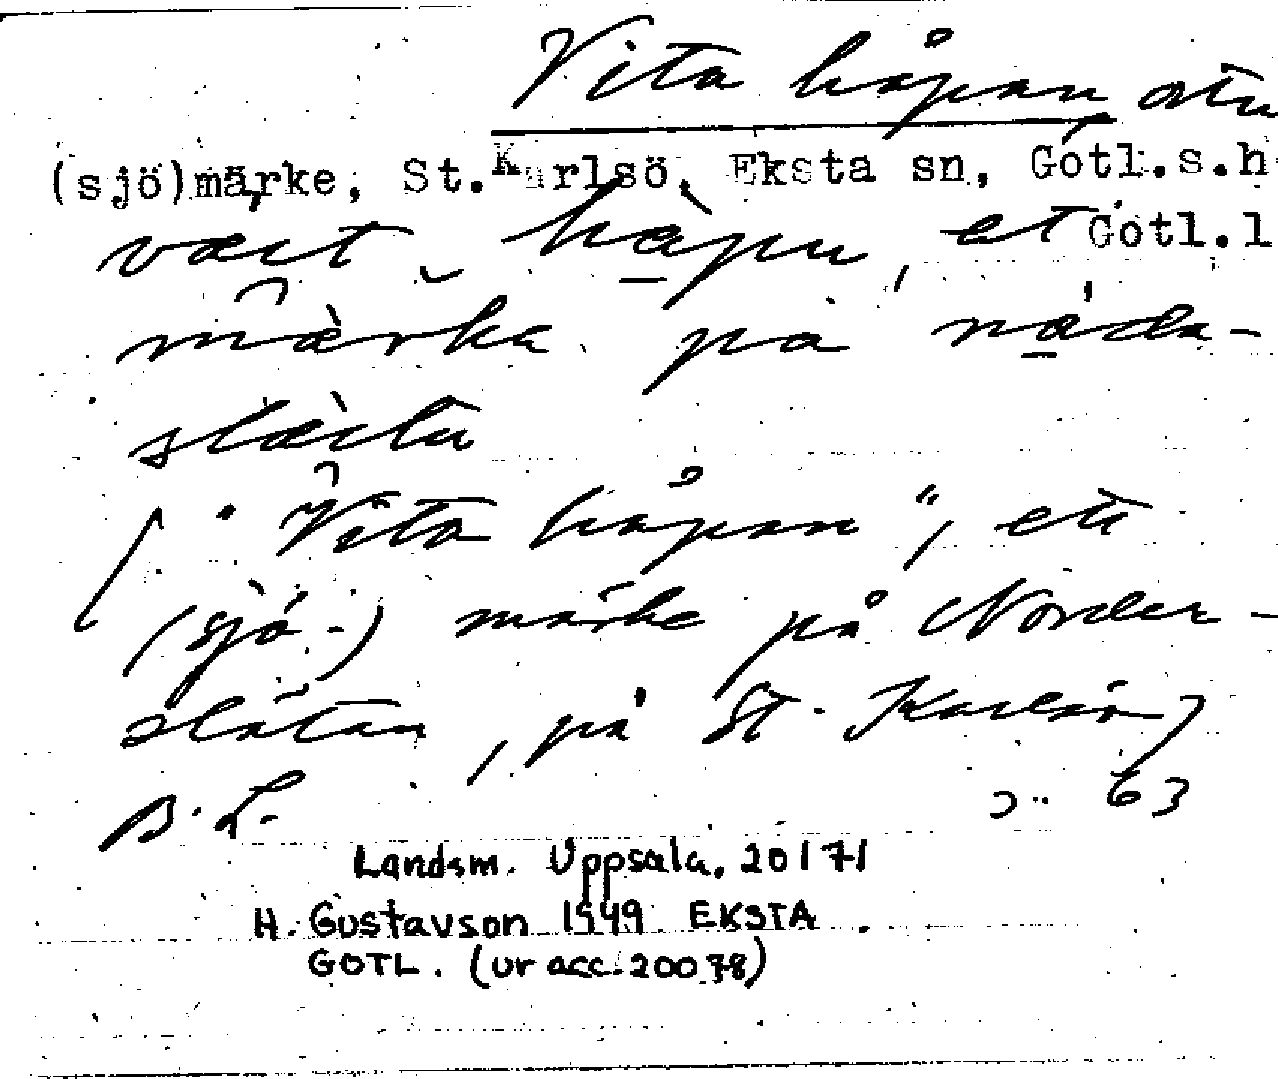 Vita håpan
(sjö)märke, St. Karlsö, Eksta sn, Gotl.s.h
Gotl.l
märka på
"Vita håpan", ett
(sjö-) märke på Norder-
slätan, på St. Karlsö
B. L. 63
Landsm. Uppsala. 20171
H. Gustavson 1949 EKSTA
GOTL. (ur acc. 20078)